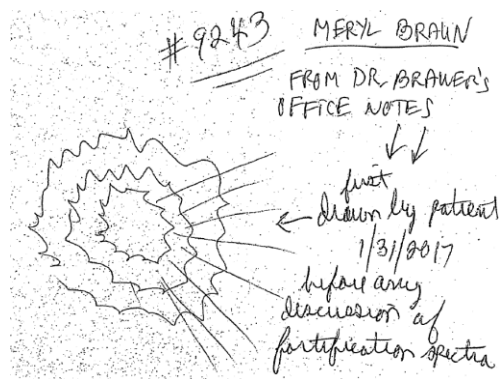 #9243
MERYL BRAUN
FROM DR. BRAWER'S
OFFICE NOTES
first
drawn by patient
1/31/2017
before any
discussion of
fortification spectra